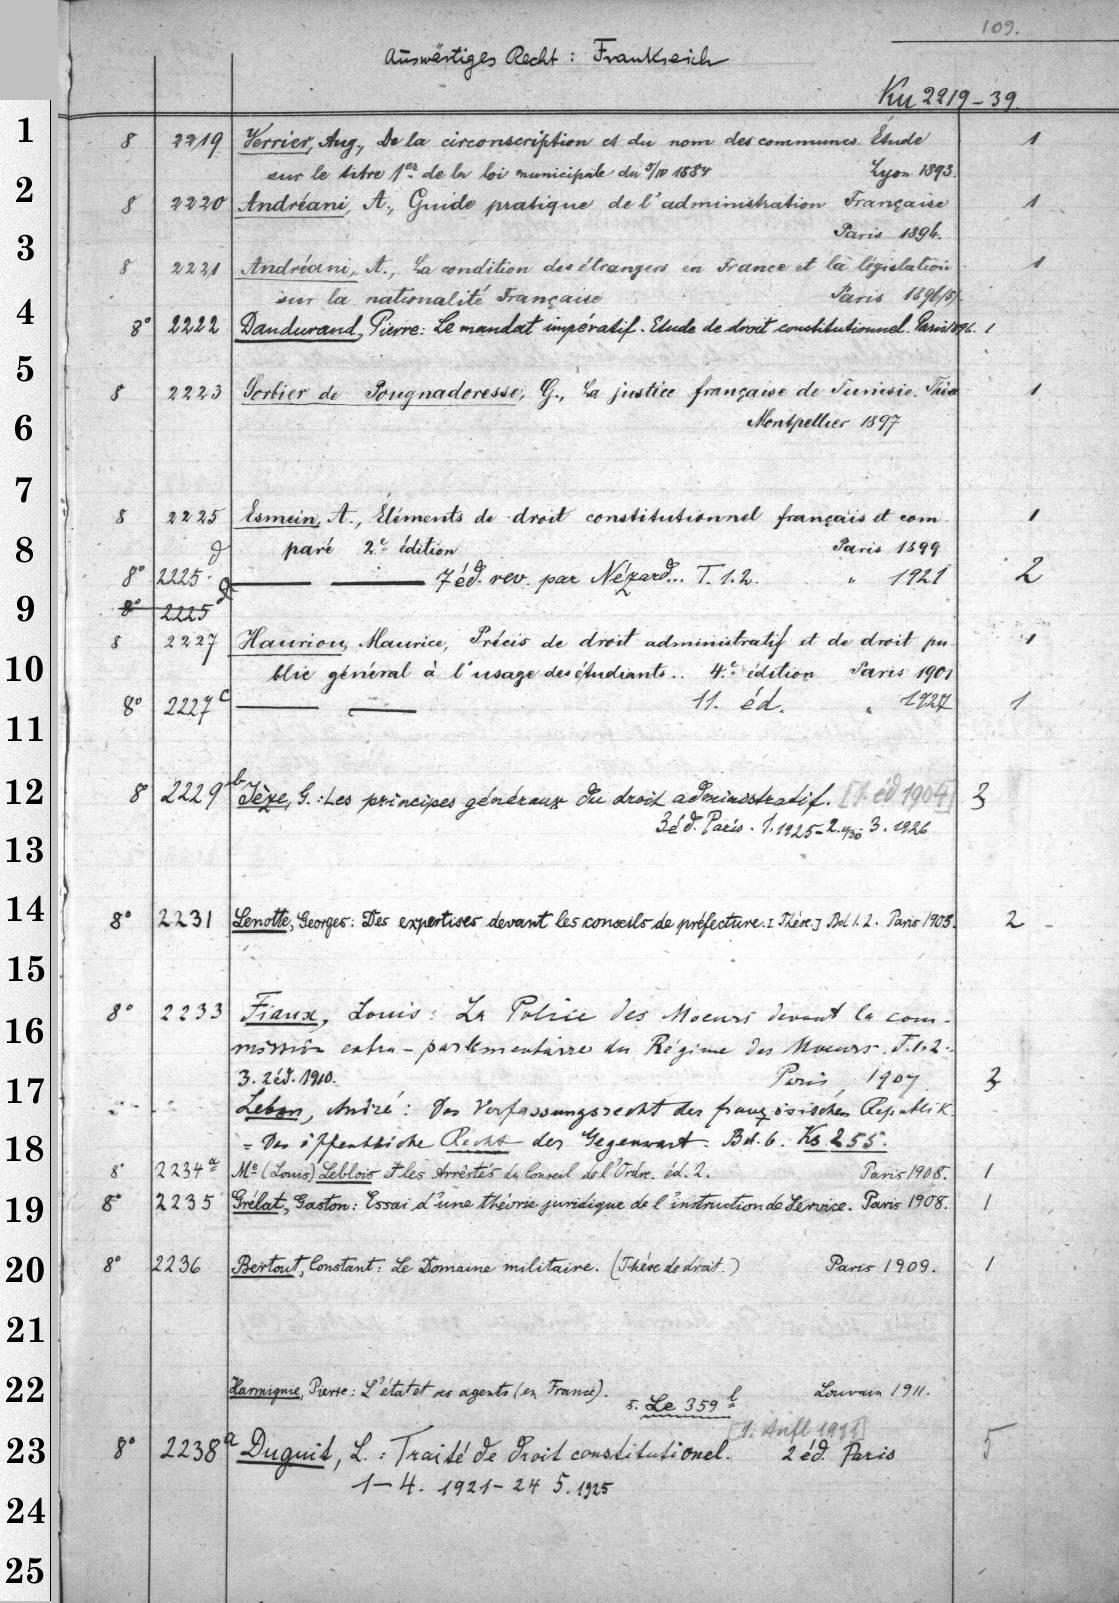 109.
Auswärtiges Recht : Frankreich
Ku 2219-39
1
8 2219 Verrier, Aug., De la circonscription et du nom des communes. Étude 1
sur le titre 1er de la loi municipale du 5/IV 1884 Lyon 1893.
2
8 2220 Andréani, A., Guide pratique de l'administration Française 1
Paris 1896.
3
8 2221 Andréani, A., La condition des étrangers en France et la législation 1
sur la nationalité Française Paris 1896
4
8° 2222 Dandurand, Pierre: Le mandat impératif. Etude de droit constitutionnel. Paris 1896. 1
5
8 2223 Sorbier de Pougnadoresse, G., La justice française de Tunisie. Thèse 1
6
Montpellier 1897
7
8 2225 Esmein, A., Éléments de droit constitutionnel français et com 1
8
paré 2e édition Paris 1899
8° 2225 d — — 7 éd. rev. par Nézard... T. 1.2. " 1921 2
9
8° 2225
8 2227 Hauriou, Maurice, Précis de droit administratif et de droit pu 1
10
blic général à l'usage des étudiants.. 4e édition Paris 1901
8° 2227 c — — 11. éd. " 1927 1
11
12
8 2229 b Jèze, G.: Les principes généraux du droit administratif. [1. éd 1904] 3
3 éd. Paris. 1. 1925-2. 3. 1926
13
14
8° 2231 Lenotte, Georges: Des expertises devant les conseils de préfecture. [Thèse.] Bd 1. 2. Paris 1905. 2
15
16
8° 2233 Fiaux, Louis: La Police des Moeurs devant la com-
mission extra-parlementaire du Régime des Moeurs. T. 1. 2.
17
3. 2 éd. 1910. Paris, 1907 3
Lebon, André: Das Verfassungsrecht der französischen Republik.
18
= Das öffentliche Recht der Gegenwart. Bd. 6. Ks 255.
8° 2234 a Me (Louis) Leblois et les Arrêtés du Conseil de l'Ordre. éd. 2. Paris 1908. 1
19
8° 2235 Grélat, Gaston: Essai d'une théorie juridique de l'instruction de Service. Paris 1908. 1
20
8° 2236 Bertout, Constant: Le Domaine militaire. (Thèse de droit.) Paris 1909. 1
21
22
Harmignie, Pierre: L'état et ses agents (en France). Louvain 1911.
s. Le 359 l
[1. Aufl 1911]
23
8° 2238 a Duguit, L.: Traité de droit constitutionel. 2 éd. Paris 5
1-4. 1921-24 5. 1925
24
25